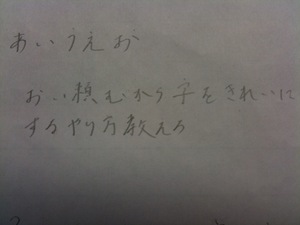 あいうえお
おい頼むから字をきれいに
するやり方教えろ